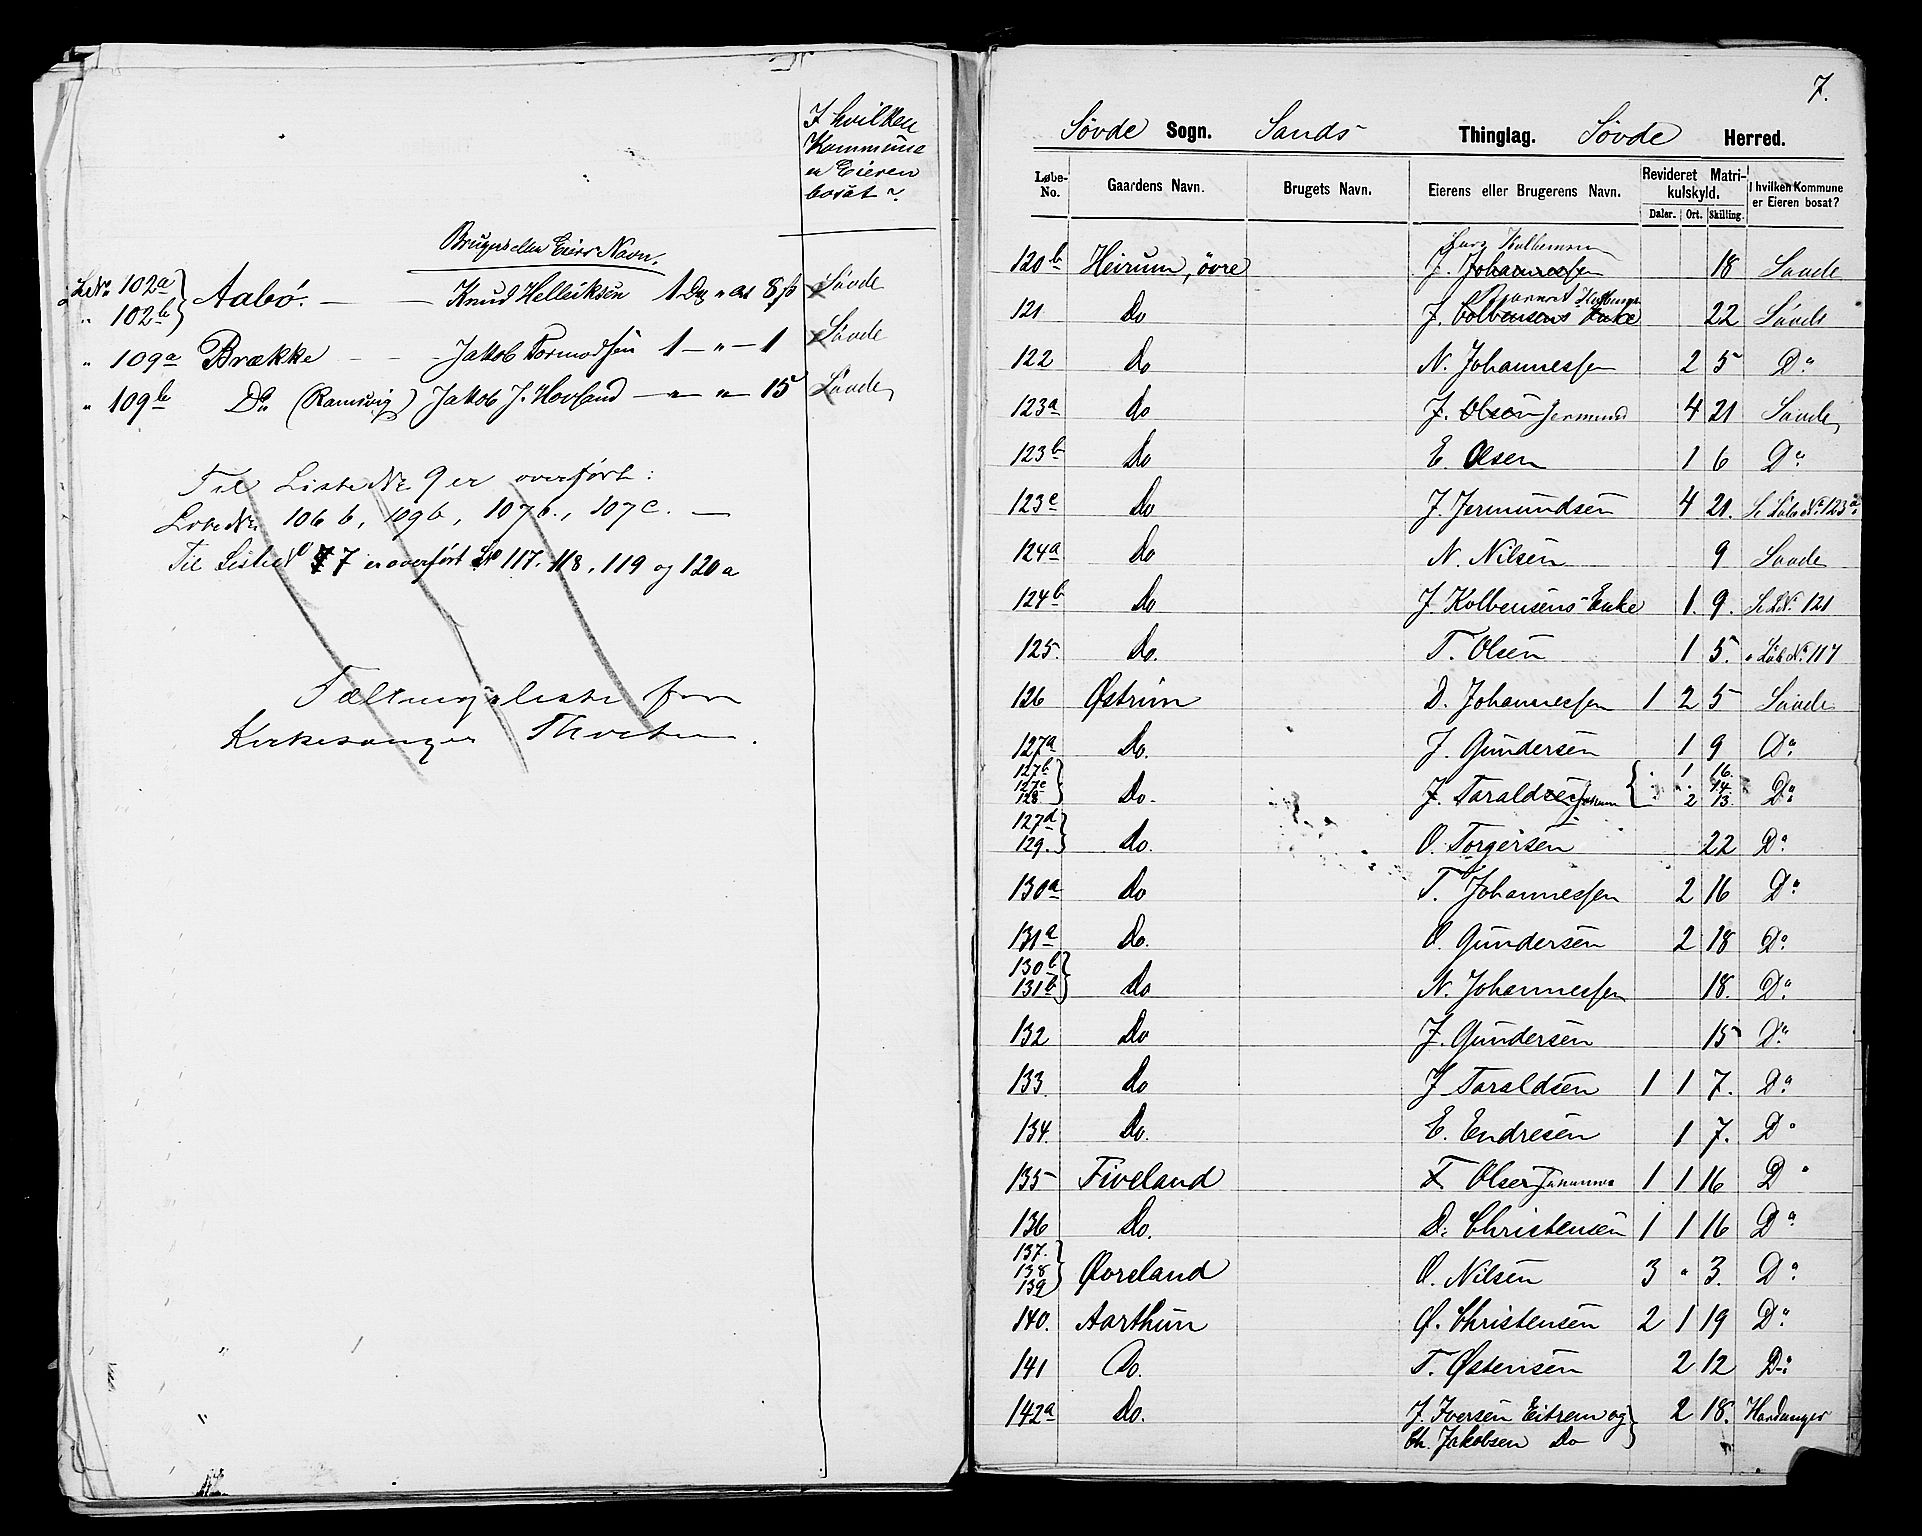 I hvilken
Kommune
er Eieren
bosat?
Brugers eller Eiers Navn.
LNo. 102a Aabø. — — Knud Helliksen 1 Dlr " Ort 8 ß Søvde
" 102b
" 109a Brække - - Jakob Tormodsen 1 — " — 1 Søvde
" 109b Do (Ramsvig) Jakob J. Hovland — " — " 15 Søvde
Til Liste No. 9 er overført:
Løbe No. 106 b, 109 b, 107 b., 107 c. —
Til Liste No 7 er overført No 117, 118, 119 og 120a
Tællingsliste for
Kirkesanger
7.
Søvde Sogn. Sands Thinglag. Søvde Herred.
Løbe-No. Gaardens Navn. Brugets Navn. Eierens eller Brugerens Navn. Revideret Matrikulskyld. I hvilken Kommune er Eieren bosat?
Daler. Ort. Skilling.
Kolbensen
120b Heirum, øvre J. Johannessen 18 Søvde
121 Do J. Colbensens Enke 22 Søvde
122 Do N. Johannessen 2 5 Do
123a Do J. Olson Jermund 4 21 Søvde
123b Do E. Olsen 1 6 Do
123c Do J. Jermundsen 4 21. Se Løbe No. 123a
124a Do N. Nilsen 9 Søvde
124b Do J. Kolbensens Enke 1. 9. Se LNo. 121
125. Do. T. Olsen 1 5. " Løb No. 117
126 Østrim D. Johannessen 1 2 5 Søvde
127a Do. J. Gundersen 1 9 Do
127b 1 16.
127c Do. J. Taraldsen 14 Do
128 2 13
127d
129. Do. O. Torgersen 22 Do
130a Do T. Johannessen 2 16 Do
131a Do. O. Gundersen 2 18 Do
130b
131b Do N. Johannessen 18. Do
132 Do J. Gundersen 15 Do
133. Do J Taraldsen 1 1 7. Do
134. Do. E. Endresen 1 7. Do
135 Fiveland T Olsen Johannes 1 1 16 Do
136 Do. D. Christensen 1 1 16 Do
137.
138 Øvreland O. Nilsen 3 " 3. Do
139
140. Aarthun Ø. Christensen 2 1 19 Do
141 Do. T. Østensen 2 12 Do
142a Do. J. Iversen Eitrem og 2 18. Hardanger
Ch. Jakobsen Do